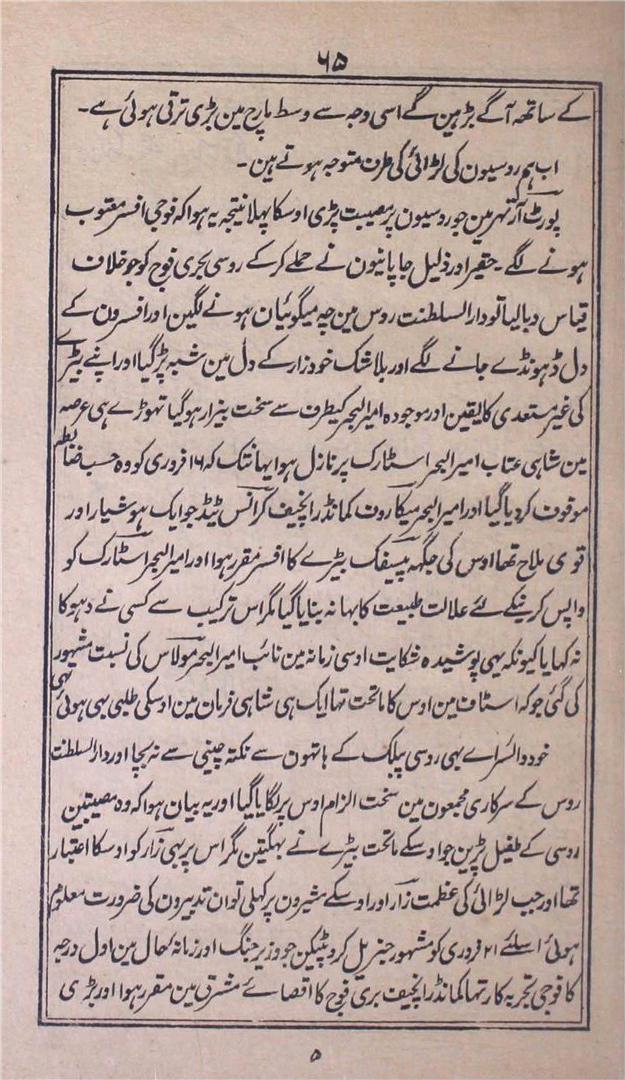 ۶۵
کے ساتھہ آگے بڑہین گے اسی وجہ سے وسط مارچ مین بڑی ترقی ہوئی ہے۔
اب ہم روسیون کی لڑائی کی طرف متوجہ ہوتے ہین۔
پورٹ آرتھر مین جو روسیون پر مصیبت پڑی اوسکا پہلا نتیجہ یہ ہوا کہ فوجی افسر معتوب
ہونے لگے۔ حقیر اور ذلیل جاپانیون نے حملے کرکے روسی بحری فوج کو جو خلاف
قیاس دبا لیا تو دارالسلطنت روس مین چہ میگوئیان ہونے لگین اور افسرون کے
دل ڈہونڈے جانے لگے اور بلاشک خود زار کے دل مین شبہ پڑگیا اور اپنے بیڑے
کی غیر مستعدی کا یقین اور موجودہ امیرالبحر کیطرف سے سخت بیزار ہوگیا تھوڑے ہی عرصہ
مین شاہی عتاب امیرالبحر اسٹارک پر نازل ہوا یہانتک کہ ۱۶ فروری کو وہ حسب ضابطہ
موقوف کردیا گیا اور امیرالبحر میکاروف کمانڈر انچیف کرانس ٹیڈ جو ایک ہوشیار اور
قوی ملاح تھا اوس کی جگہہ پیسیفک بیڑے کا افسر مقرر ہوا اور امیرالبحر اسٹارک کو
واپس کرنیکے لئے علالت طبیعت کا بہانہ بنایا گیا مگر اس ترکیب سے کسی نے دہوکا
نہ کہایا کیونکہ یہی پوشیدہ شکایت اوسی زمانہ مین نائب امیرالبحر مولاس کی نسبت مشہور
کی گئی جو کہ اسٹاف مین اوس کا ماتحت تہا ایک ہی شاہی فرمان مین اوسکی طلبی بہی ہوئی تہی
خود والسراے بہی روسی پبلک کے ہاتھون سے نکتہ چینی سے نہ بچا اور دارالسلطنت
روس کے سرکاری مجمعون مین سخت الزام اوس پر لگایا گیا اور یہ بیان ہوا کہ وہ مصیبتین
روسی کے طفیل پڑین جو اوسکے ماتحت بیڑے نے بہگتین مگر اس پر بہی زار کو اوسکا اعتبار
تھا اور جب لڑائی کی عظمت زار اور اوسکے مشیرون پر کہلی تو ان تدبیرون کی ضرورت معلوم
ہوئی اسلئے ۲۱ فروری کو مشہور جنریل کروپٹیکن جو وزیر جنگ اور زمانۂ حال مین اول درجہ
کا فوجی تجربہ کار تہا کمانڈر انچیف بری فوج کا اقصائے مشرق مین مقرر ہوا اور بڑی
۵